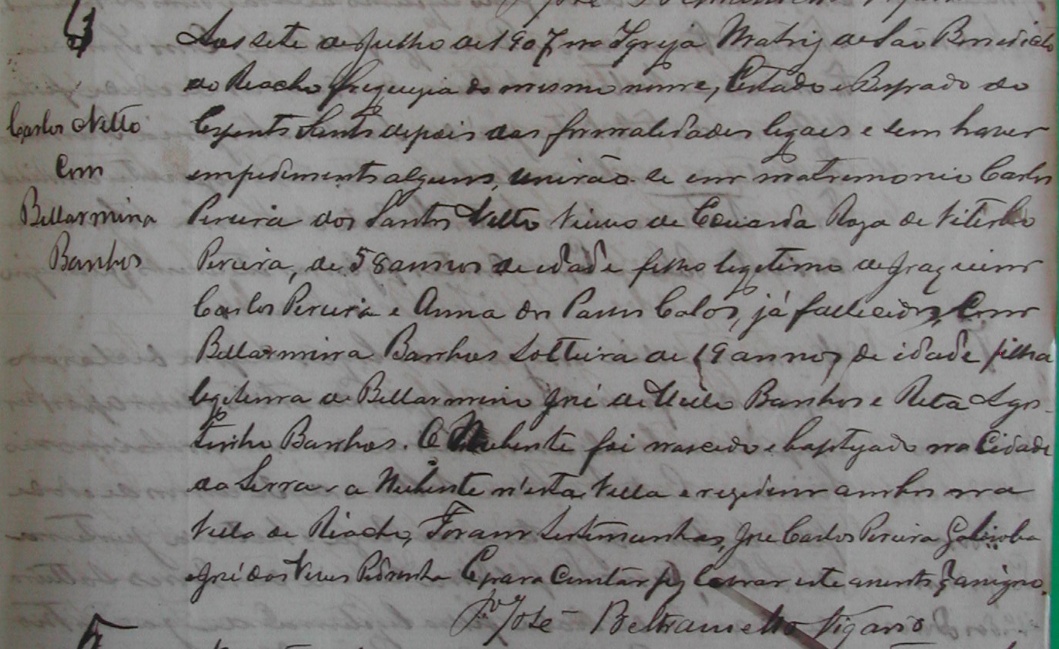 Carlos Netto
com
Bellarmina
Banhos
Aos sete de Julho de 1907 na Igreja Matriz de São Benedicto
do Riacho freguezia do mesmo nome, Estado e Bispado do
Espirito Santo depois das formalidades legaes e sem haver
empedimento algum, unirão se em matremonio Carlos
Pereira dos Santos Netto Viuvo de Eduarda Roza de Viterbo
Pereira, de 58 annos de idade filho legetimo de Joaquim
Carlos Pereira e Anna dos já fallecidos, Com
Bellarmina Banhos Solteira de 19 annos de idade filha
legitima de Bellarmino José de Mello Banhos e Rita Agos-
tinho Banhos. O Nubente foi nascido e baptizado na Cidade
da Serra e a Nubente n'esta Villa e rezidem ambos na
Villa do Riacho, Foram testimunhas, José Carlos Pereira
e José dos Pedrinha E para Constar fiz lavrar este assento q assigno.
Pe José Beltramello Vigario